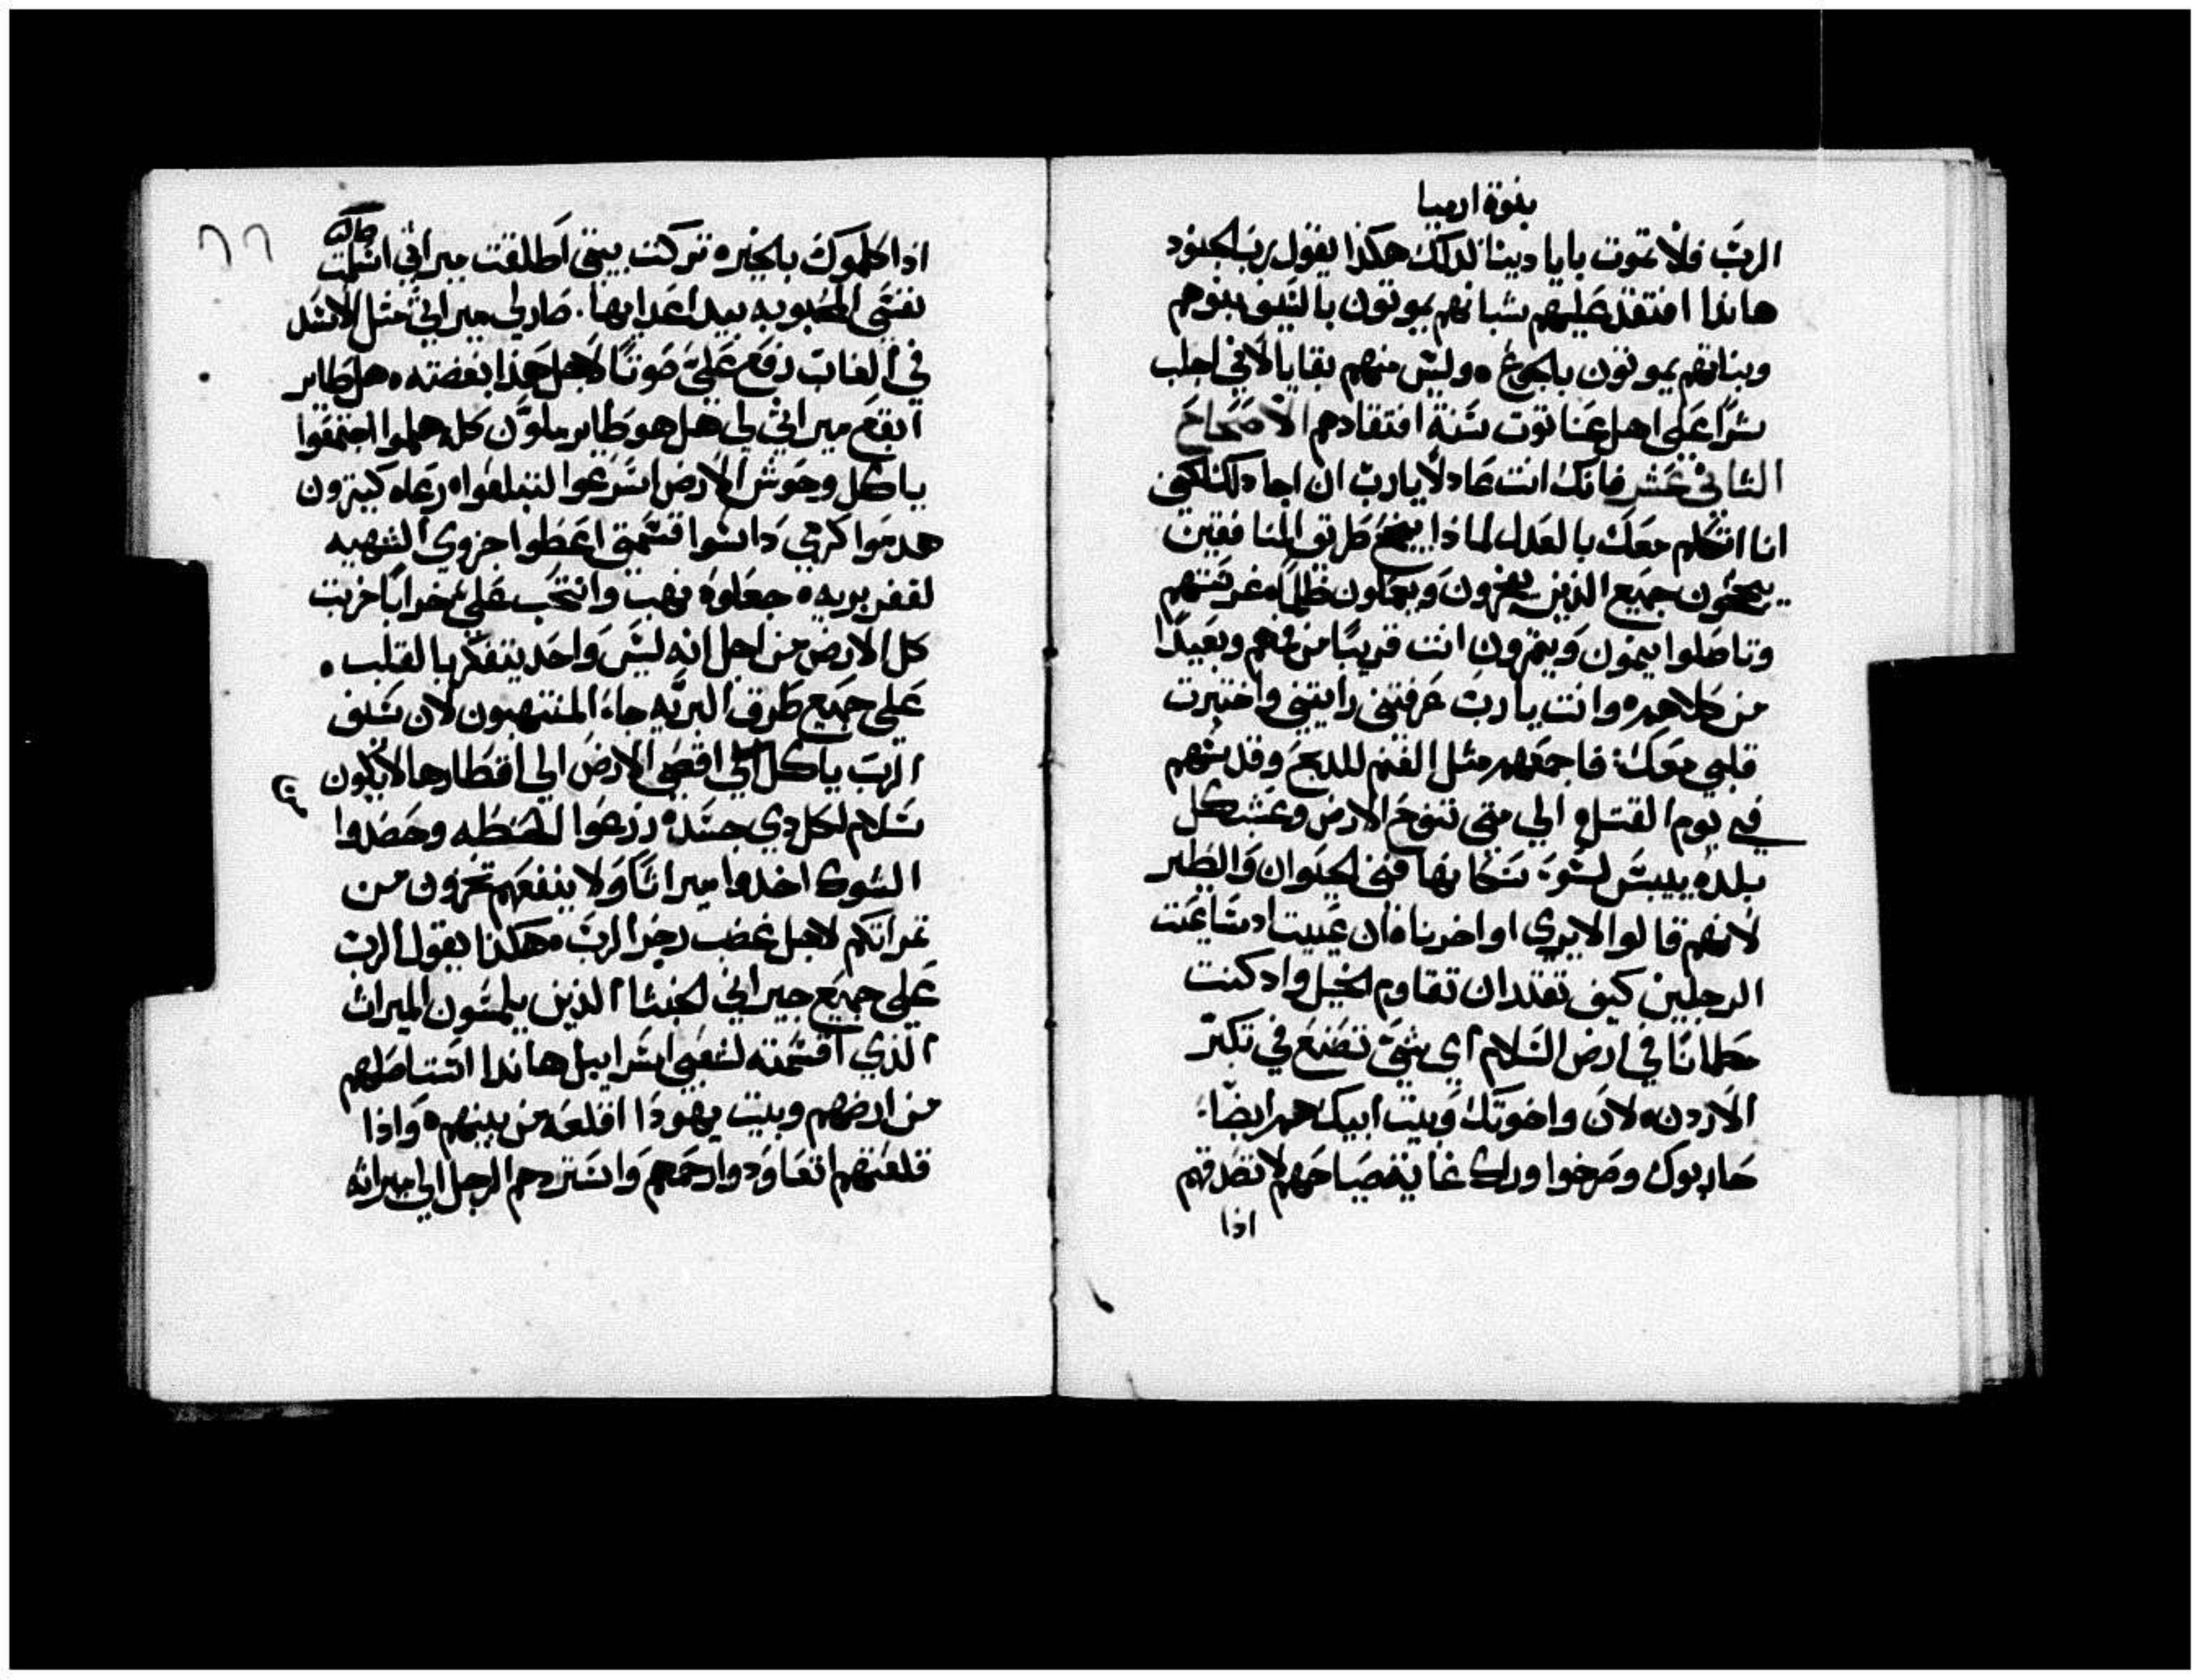 بنوة ارميا
الربّ فلا تموت بايادينا لدلك هكذا يقول رب الجنود
هاندا افتقد عليهم شبانهم يموتون بالسيف بنوهم
وبناتهم يموتون بالجوع وليس منهم بقايا لاني اجلب
شرًا على اهل عناتوت سنة افتقادهم الاصحاح
الثاني عشر فانك انت عادلا يارب ان اجادلك لكني
انا اتكلم معك بالعدل لماذا ينجح طريق المنافقين
ينجحون جميع الذين يغزون ويعملون ظلمًا غرستهم
وتاصلوا ينمون ويثمرون انت قريبًا من فمهم وبعيدًا
من كلاهم وانت يارب عرفتني رايتني واختبرت
قلبي معك فاجمعهم مثل الغنم للدبح وقدسهم
في يوم القتل الي متي تنوح الارض وعشب كل
بلده ييبس لسوء سكانها فني الحيوان والطير
لانهم قالوا لا يري اواخرنا فان عييت ادسايمت
الرجلين كيف تقتدر ان تقاوم الخيل واد كنت
مطمانا في ارض السلام اي شي تصنع في تكبر
الاردن لان واخوتك وبيت ابيك هم ايضا
حاربوك وصرخوا وراك غاية صياحهم لا تصدقهم
اذا
٦٦
اذا كلموك بالخيره تركت بيتي اطلقت ميراثي اسلمت
نفسي المحبوبه بيد اعدايها. صار لي ميراثي مثل الاسد
في الغاب رفع علي صوتًا لاجل هذا بغضته هل طاير
ابقع ميراثي لي هل هو طاير ملون كله هلموا اجتمعوا
ياكل وحوش الارض اسرعوا لتبلعوا رعاه كثيرون
هدموا كرمي داسوا قسمتي اعطوا جزوي الشهيه
لقفر بريه جعلوه نهب وانتحب علي خرابًا خربت
كل الارض من اجل انه ليس واحد يتفكر بالقلب.
علي جميع طرق البريه جاء المنتهبون لان سيف
الرب ياكل من اقصي الارض الي اقطارها لا يكون
سلام لكل دي جسد زرعوا الحنطه وحصدوا
الشوك اخدوا ميراثًا ولا ينفعهم تخزون من
ثمراتكم لاجل غضب رجز الرب هكذا يقول الرب
علي جميع جيراني الخبثا الذين يلمسون الميراث
الذي اقسمته لشعبي اسراييل هاندا استاصلهم
من ارضهم وبيت يهودا اقلعه من بينهم واذا
قلعتهم اتعاود وارحمهم واستردهم الرجل الي ميراثه